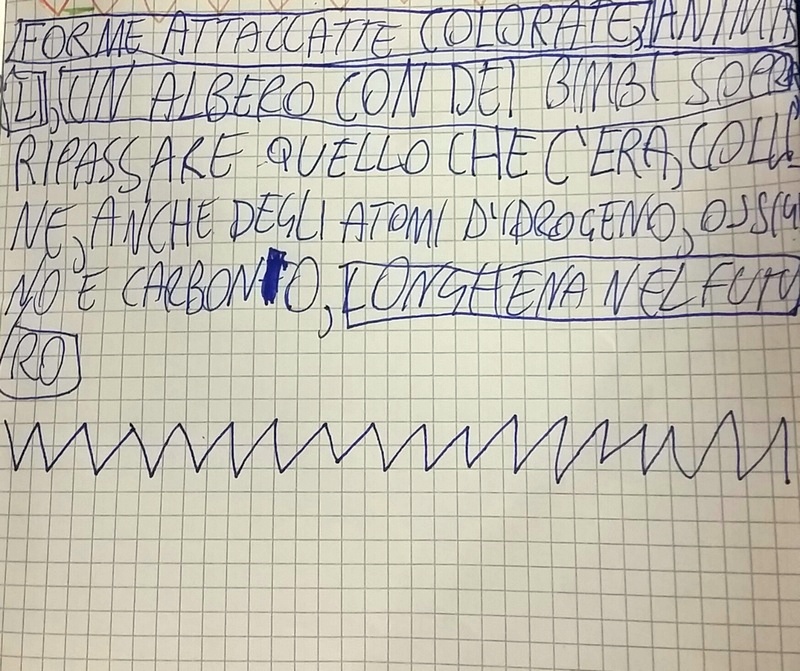 FORME ATTACCATTE COLORATE, ANIMA
LI, UN ALBERO CON DEI BIMBI SOPRA
RIPASSARE QUELLO CHE C'ERA, COLLI
NE, ANCHE DEGLI ATOMI D'IDROGENO, OSSIG
NO E CARBONIO, LONGHENA NEL FUTU
RO